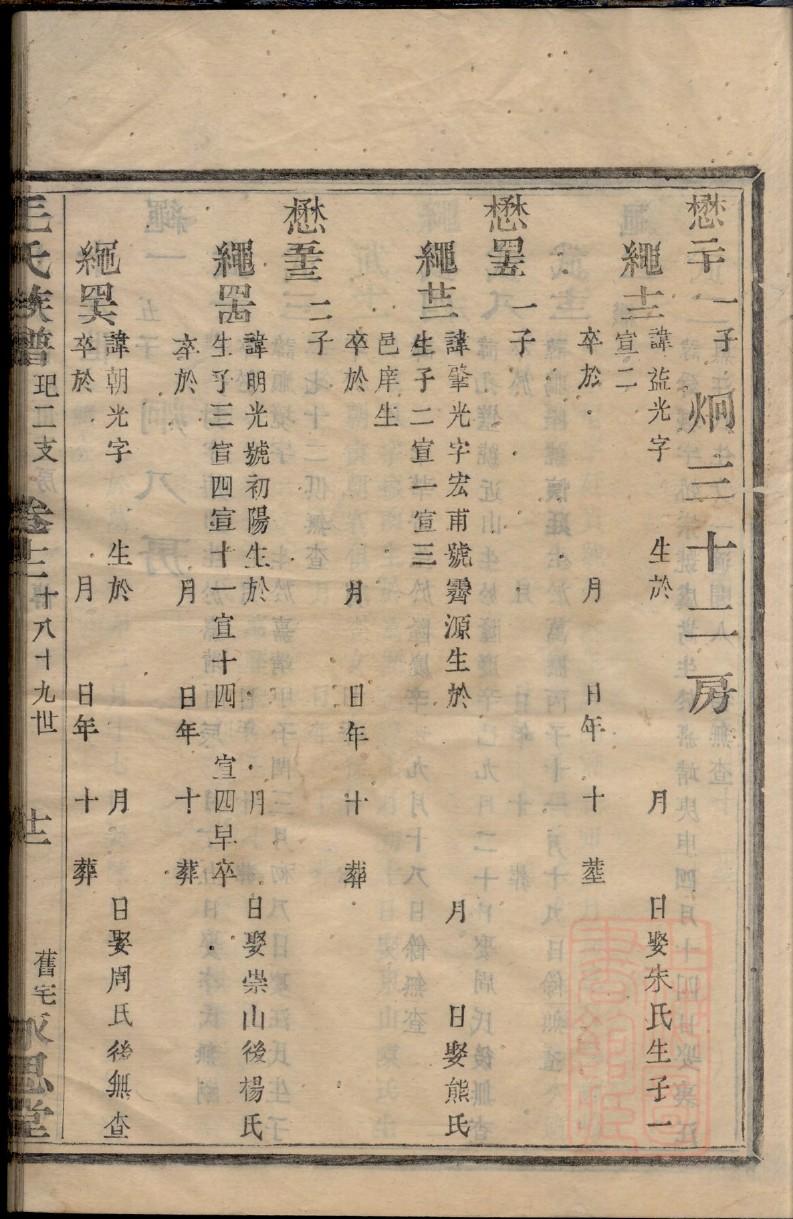 炯三十二房
懋二十 一子
繩十三 諱益光字 生於 月 日娶朱氏生子一
宣二
卒於 月 日年 十 葬
懋四十五 一子
繩廿三 諱肇光字宏甫號霽源生於 月 日娶熊氏
生子二宣一宣三
邑庠生
卒於 月 日年 十 葬
懋五十三 二子
繩四十四 諱明光號初陽生於 月 日娶崇山後楊氏
生子三宣四宣十一宣十四 宣四早卒
卒於 月 日年 十 葬
繩四十六 諱朝光字 生於 月 日娶周氏後無查
卒於 月 日年 十 葬
王氏族譜 玘二支房 卷十三 十八十九世 廿二 舊宅 永思堂